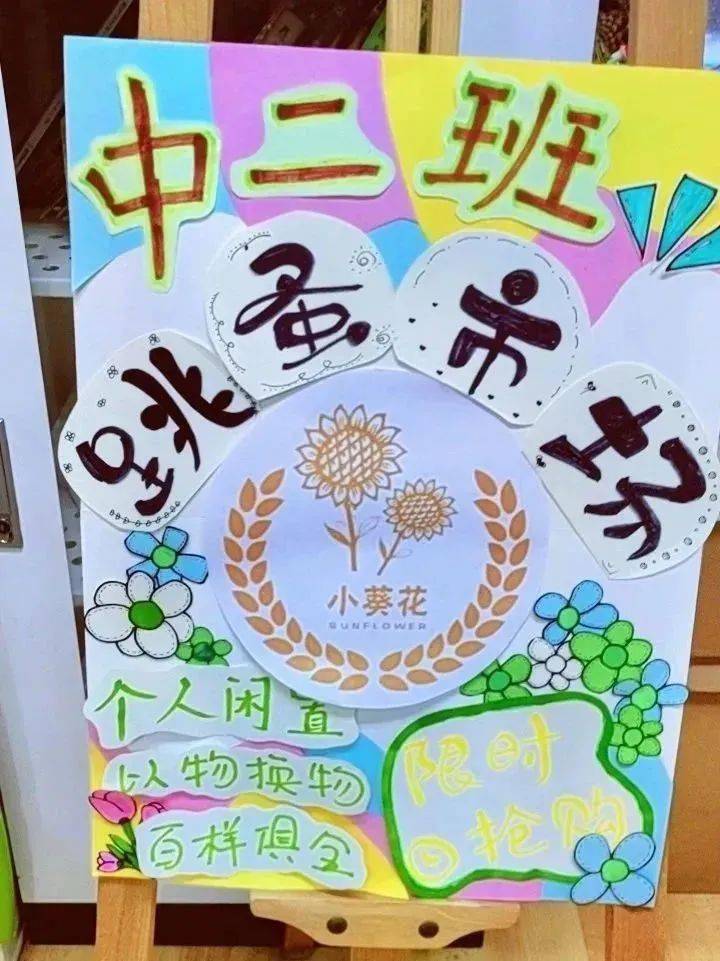 中二班
跳蚤市场
小葵花
SUNFLOWER
个人闲置
以物换物
百样俱全
限时
抢购